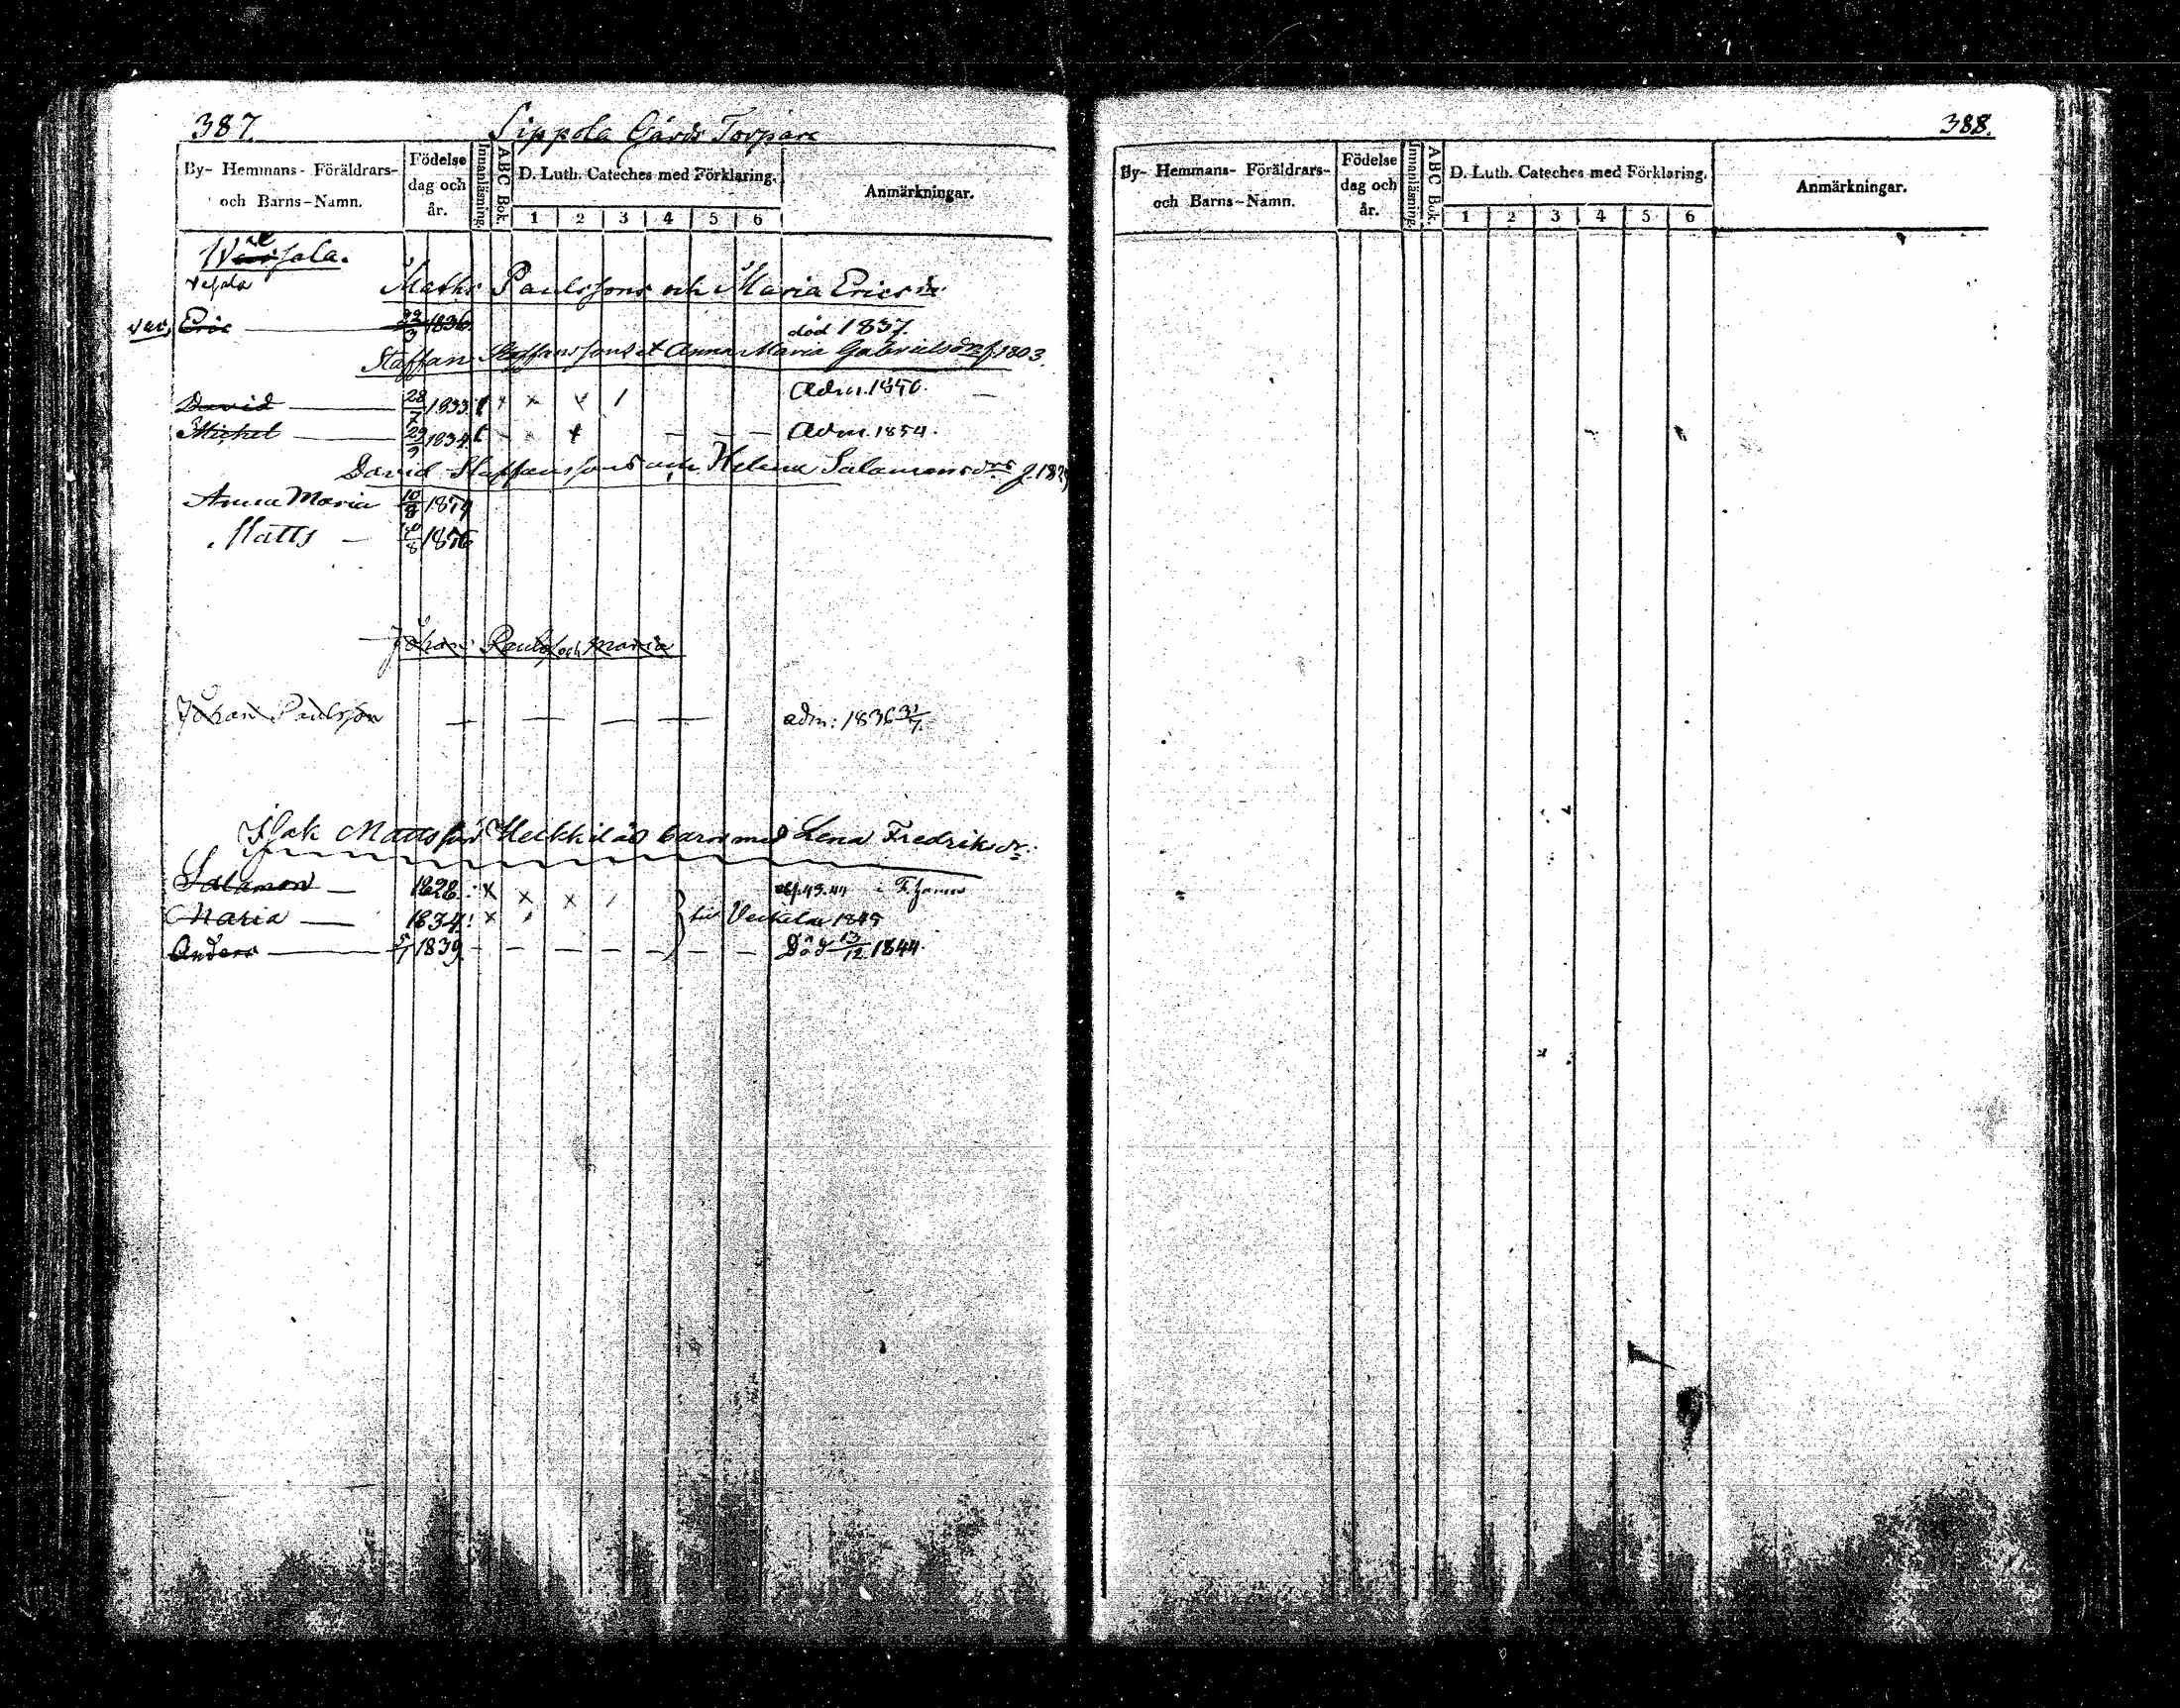 387.
Sippola Gårds Torpare
By- Hemmans- Föräldrars- och Barns-Namn.
Födelse dag och år.
Innanläsning.
ABC Bok.
D. Luth. Cateches med Förklaring.
1 2 3 4 5 6
Anmärkningar.
Matts Paulssons och Maria Ericsdr
vac. Eric — 22/3 1836. död 1837.
Staffan Staffanssons et Anna Maria Gabrielsdr f. 1803.
David — 28/7 1833 x x x / Adm. 1850.
Michel — 29/9 1834 Adm. 1854.
David Staffanssons och Helena Salamonsdrs f. 182
Anna Maria 10/8 1854
Matts —
Johan Paulss och Maria
Johan Paulsson — — — — adm: 1836 31/7.
Isak Mattsson Heikkiläs barn med Lena Fredriksdr:
Salamon — 1828: x x x /
Maria — 1834: x ' 1845
Anders — 5/1 1839 — — — — — — — Död 13/12 1844.
388.
By- Hemmans- Föräldrars- och Barns-Namn.
Födelse dag och år.
Innanläsning.
ABC Bok.
D. Luth. Cateches med Förklaring.
1 2 3 4 5 6
Anmärkningar.